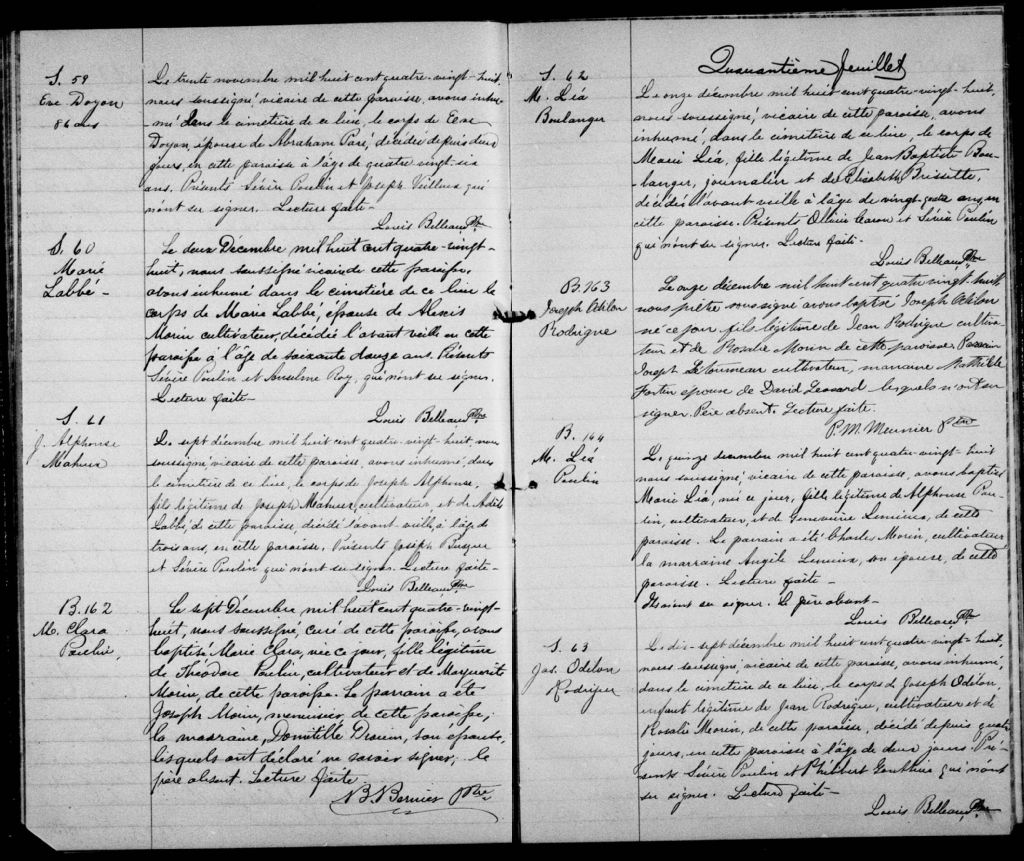 S. 59
Eve Doyon
86 ans
Le trente novembre mil huit cent quatre-vingt-huit
nous soussigné, vicaire de cette paroisse, avons inhu-
mé dans le cimetière de ce lieu, le corps de Eve
Doyon, épouse de Abraham Paré, décédée depuis deux
jours, en cette paroisse à l'âge de quatre-vingt-six
ans. Présents Sévère Poulin et Joseph Veilleux qui
n'ont su signer. Lecture faite-
Louis Belleau, Ptre
S. 60
Marie
Labbé-
Le deux Décembre mil huit cent quatre-vingt-
huit, nous soussigné vicaire de cette paroisse,
avons inhumé dans le cimetière de ce lieu le
corps de Marie Labbé, épouse de Alexis
Morin cultivateur, décédée l'avant veille en cette
paroisse à l'âge de soixante douze ans. Présents
Sévère Poulin et Anselme Roy, qui n'ont su signer.
Lecture faite-
Louis Belleau, Ptre
S. 61
J. Alphonse
Maheux
Le sept décembre mil huit cent quatre-vingt-huit nous
soussigné, vicaire de cette paroisse, avons inhumé, dans
le cimetière de ce lieu, le corps de Joseph Alphonse,
fils légitime de Joseph Maheux, cultivateur, et de
Labbé, de cette paroisse décédé l'avant veille, à l'âge de
trois ans, en cette paroisse. Présents Joseph
et Sévère Poulin qui n'ont su signer. Lecture faite-
Louis Belleau, Ptre
B. 162
M. Clara
Poulin,
Le sept Décembre mil huit cent quatre-vingt-
huit, nous soussigné, curé de cette paroisse, avons
baptisé Marie Clara, née ce jour, fille légitime
de Théodore Poulin, cultivateur et de Marguerite
Morin, de cette paroisse. Le parrain a été
Joseph Morin, menuisier, de cette paroisse,
la marraine, Domitille Drouin, son épouse,
lesquels ont déclaré ne savoir signer, le
père absent. Lecture faite
N B Bernier Ptre
Quarantième feuillet
S. 62
M. Léa
Boulanger
Le onze décembre mil huit cent quatre-vingt-huit,
nous soussigné, vicaire de cette paroisse, avons
inhumé, dans le cimetière de ce lieu, le corps de
Marie Léa, fille légitime de Jean Baptiste Bou-
langer, journalier et de Elizabeth Brissette,
décédée l'avant veille à l'âge de vingt-quatre ans, en
cette paroisse. Présents Ollivier Caron et Sévère Poulin
qui n'ont su signer. Lecture faite-
Louis Belleau, Ptre
B. 163
Joseph Odilon
Rodrigue
Le onze décembre mil huit cent quatre vingt huit
nous prêtre soussigné avons baptisé Joseph Odilon
né ce jour fils légitime de Jean Rodrigue cultiva-
teur et de Rosalie Morin de cette paroisse. Parrain
Joseph Létourneau cultivateur, marraine Mathilde
Fortier épouse de David Lessard lesquels n'ont su
signer. Père absent. Lecture faite.
P. M. Meunier Ptre
B. 164
M. Léa
Poulin
Le quinze décembre mil huit cent quatre-vingt-huit
nous soussigné, vicaire de cette paroisse, avons baptisé
Marie Léa, née ce jour, fille légitime de Alphonse Pou-
lin, cultivateur, et de Geneviève Lemieux, de cette
paroisse. Le parrain a été Charles Morin, cultivateur
la marraine Angèle Lemieux, son épouse, de cette
paroisse. Lecture faite-
Ils n'ont su signer. Le père absent-
Louis Belleau, Ptre
S. 63
Jos. Odilon
Rodrigue
Le dix-sept décembre mil huit cent quatre-vingt-huit,
nous soussigné, vicaire de cette paroisse, avons inhumé,
dans le cimetière de ce lieu, le corps de Joseph Odilon,
enfant légitime de Jean Rodrigue, cultivateur et de
Rosalie Morin, de cette paroisse, décédé depuis quatre
jours, en cette paroisse à l'âge de deux jours. Pré-
sents Sévère Poulin et Philibert Gonthier qui n'ont
su signer. Lecture faite-
Louis Belleau, Ptre